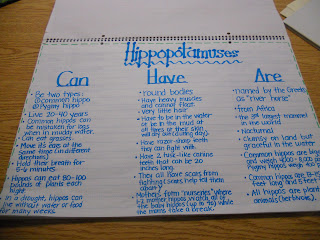 Hippopotamuses
Can
• Be two types:
① common hippo
② Pygmy hippo
• Live 20-40 years
• Common hippos can
be mistaken for logs
when in muddy water.
• Can eat grasses
• Move its ears at the
same time (in different
directions)
• Hold their breath for
5-6 minutes
• Hippos can eat 80-100
pounds of plants each
night
• In a drought, hippos can
live without water or food
for many weeks.
Have
• round bodies
• Have heavy muscles
and cannot float
• very little hair
• Have to be in the water
or be in the mud at
all times or their skin
will dry out during day.
• Have razor-sharp teeth
they can fight with
• Have 2 tusk-like canine
teeth that can be 20
inches long
• They all have scars from
fighting
• Mothers form "nurseries" where
1-2 mother hippos watch all of
the baby hippos (up to 15) while
the moms take a break.
Are
• named by the Greeks
as "river horse"
• from Africa
• the 3rd largest mammal
in the world
• Nocturnal
• Clumsy on land but
graceful in the water
• Common hippos are big
and weigh
Pygmy hippos weigh
• Common hippos are
feet long and 5 feet
• All hippos are plant
(herbivores).